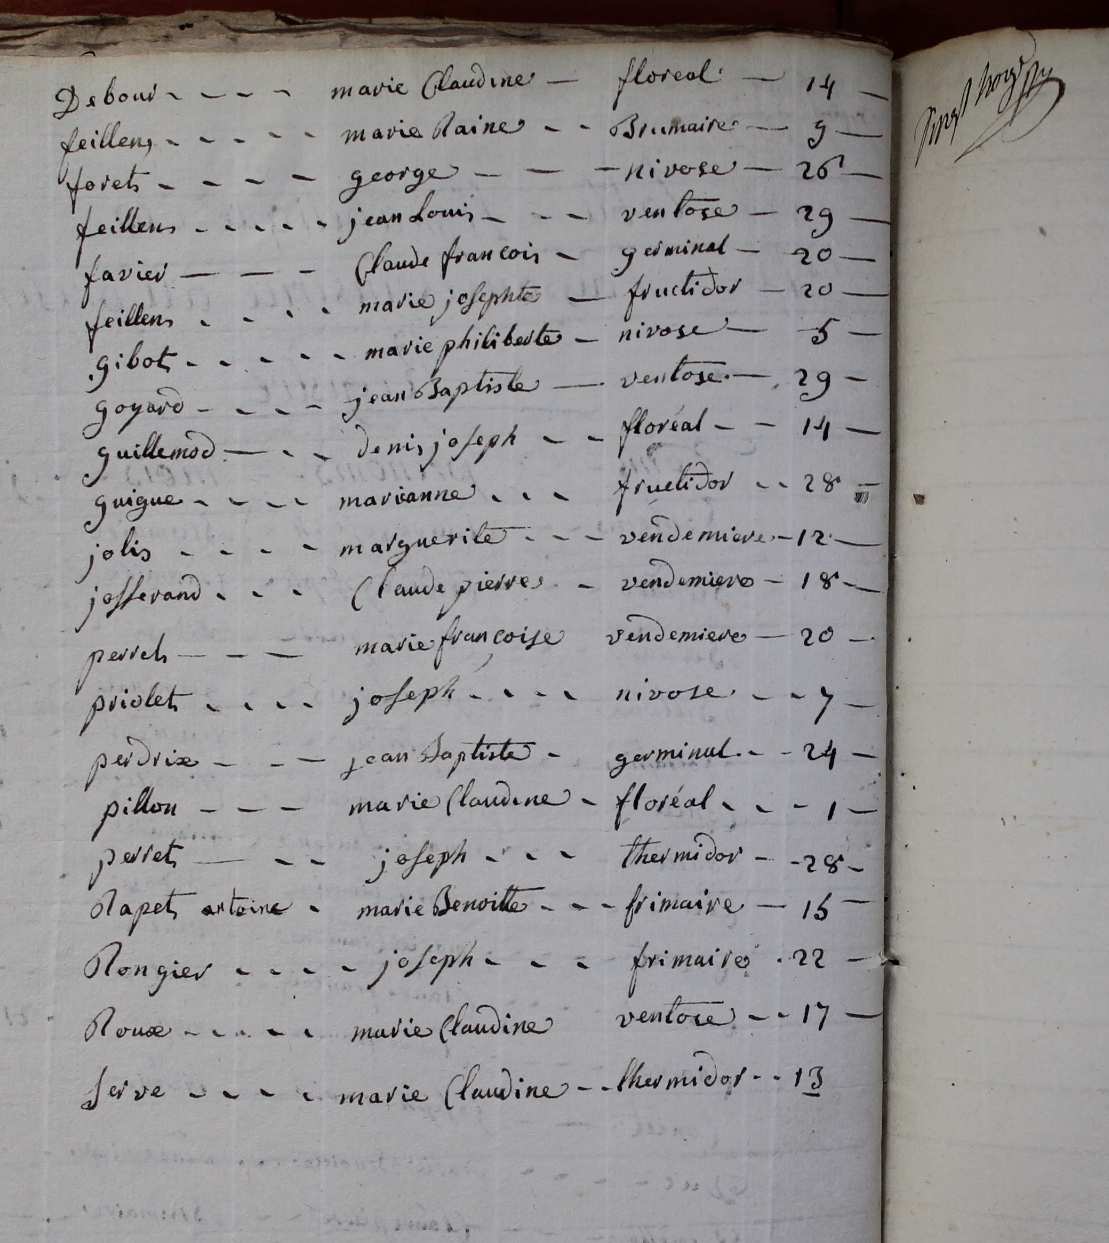 Debour - - - - marie Claudine - floreal - 14 -
feillens - - - - - marie Raine - - Brumaire - 9 -
forets - - - - george - - - nivose - 26 -
feillens - - - - - jean Louis - - - ventose - 29 -
favier - - - Claude francois - germinal - 20 -
feillens - - - - marie josephte - fructidor - 20 -
gibot - - - - - - marie philiberte - nivose - 5 -
goyard - - - - jean Baptiste - ventose - 29 -
guillemod - - - denis joseph - - floréal - - 14 -
guigue - - - - marianne - - - fructidor - - 28
jolis - - - - marguerite - - - vendemiere - 12 -
josserand - - - Claude pierre - vendemiere - 18 -
perret - - - marie françoise vendemiere - 20 -
priolet - - - - joseph - - - - nivose - - 7 -
perdrix - - - jean Baptiste - germinal - - 24 -
pillon - - - marie Claudine - floréal - - - 1 -
perret - - - joseph - - - thermidor - - 28 -
Rapet antoine - marie Benoitte - - - frimaire - 15 -
Rongier - - - - joseph - - - - frimaire - 22 -
Roux - - - - - marie Claudine ventose - - 17 -
serve - - - - marie Claudine - - thermidor - - 13